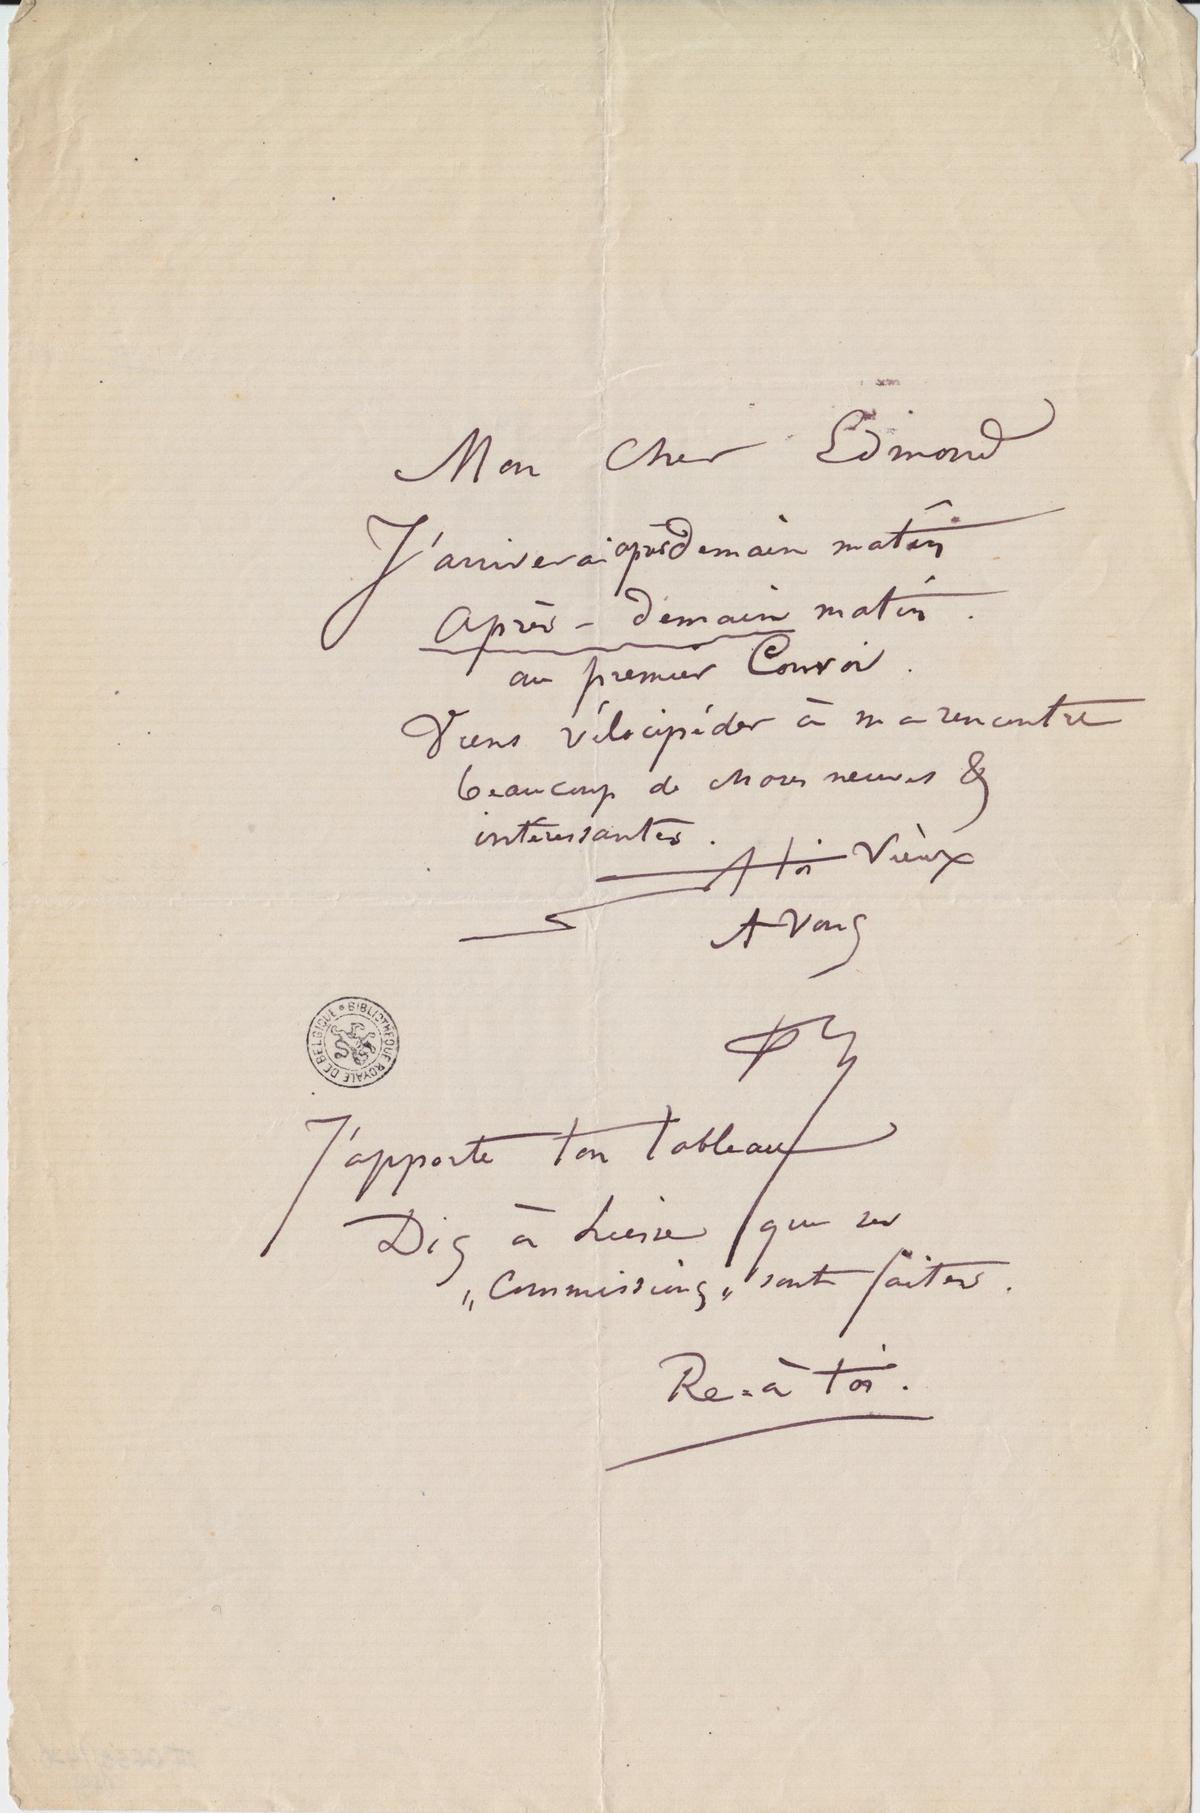 Mon Cher Edmond
J'arriverai après demain matin
Après-demain matin.
au premier Convoi.
Viens vélocipéder à ma rencontre
beaucoup de choses neuves &
intéressantes.
A toi Vieux
A Vous
BIBLIOTHEQUE ROYALE DE BELGIQUE
J'apporte ton tableau
Dis à que ses
„Commissions„ sont faites.
Re=à toi.